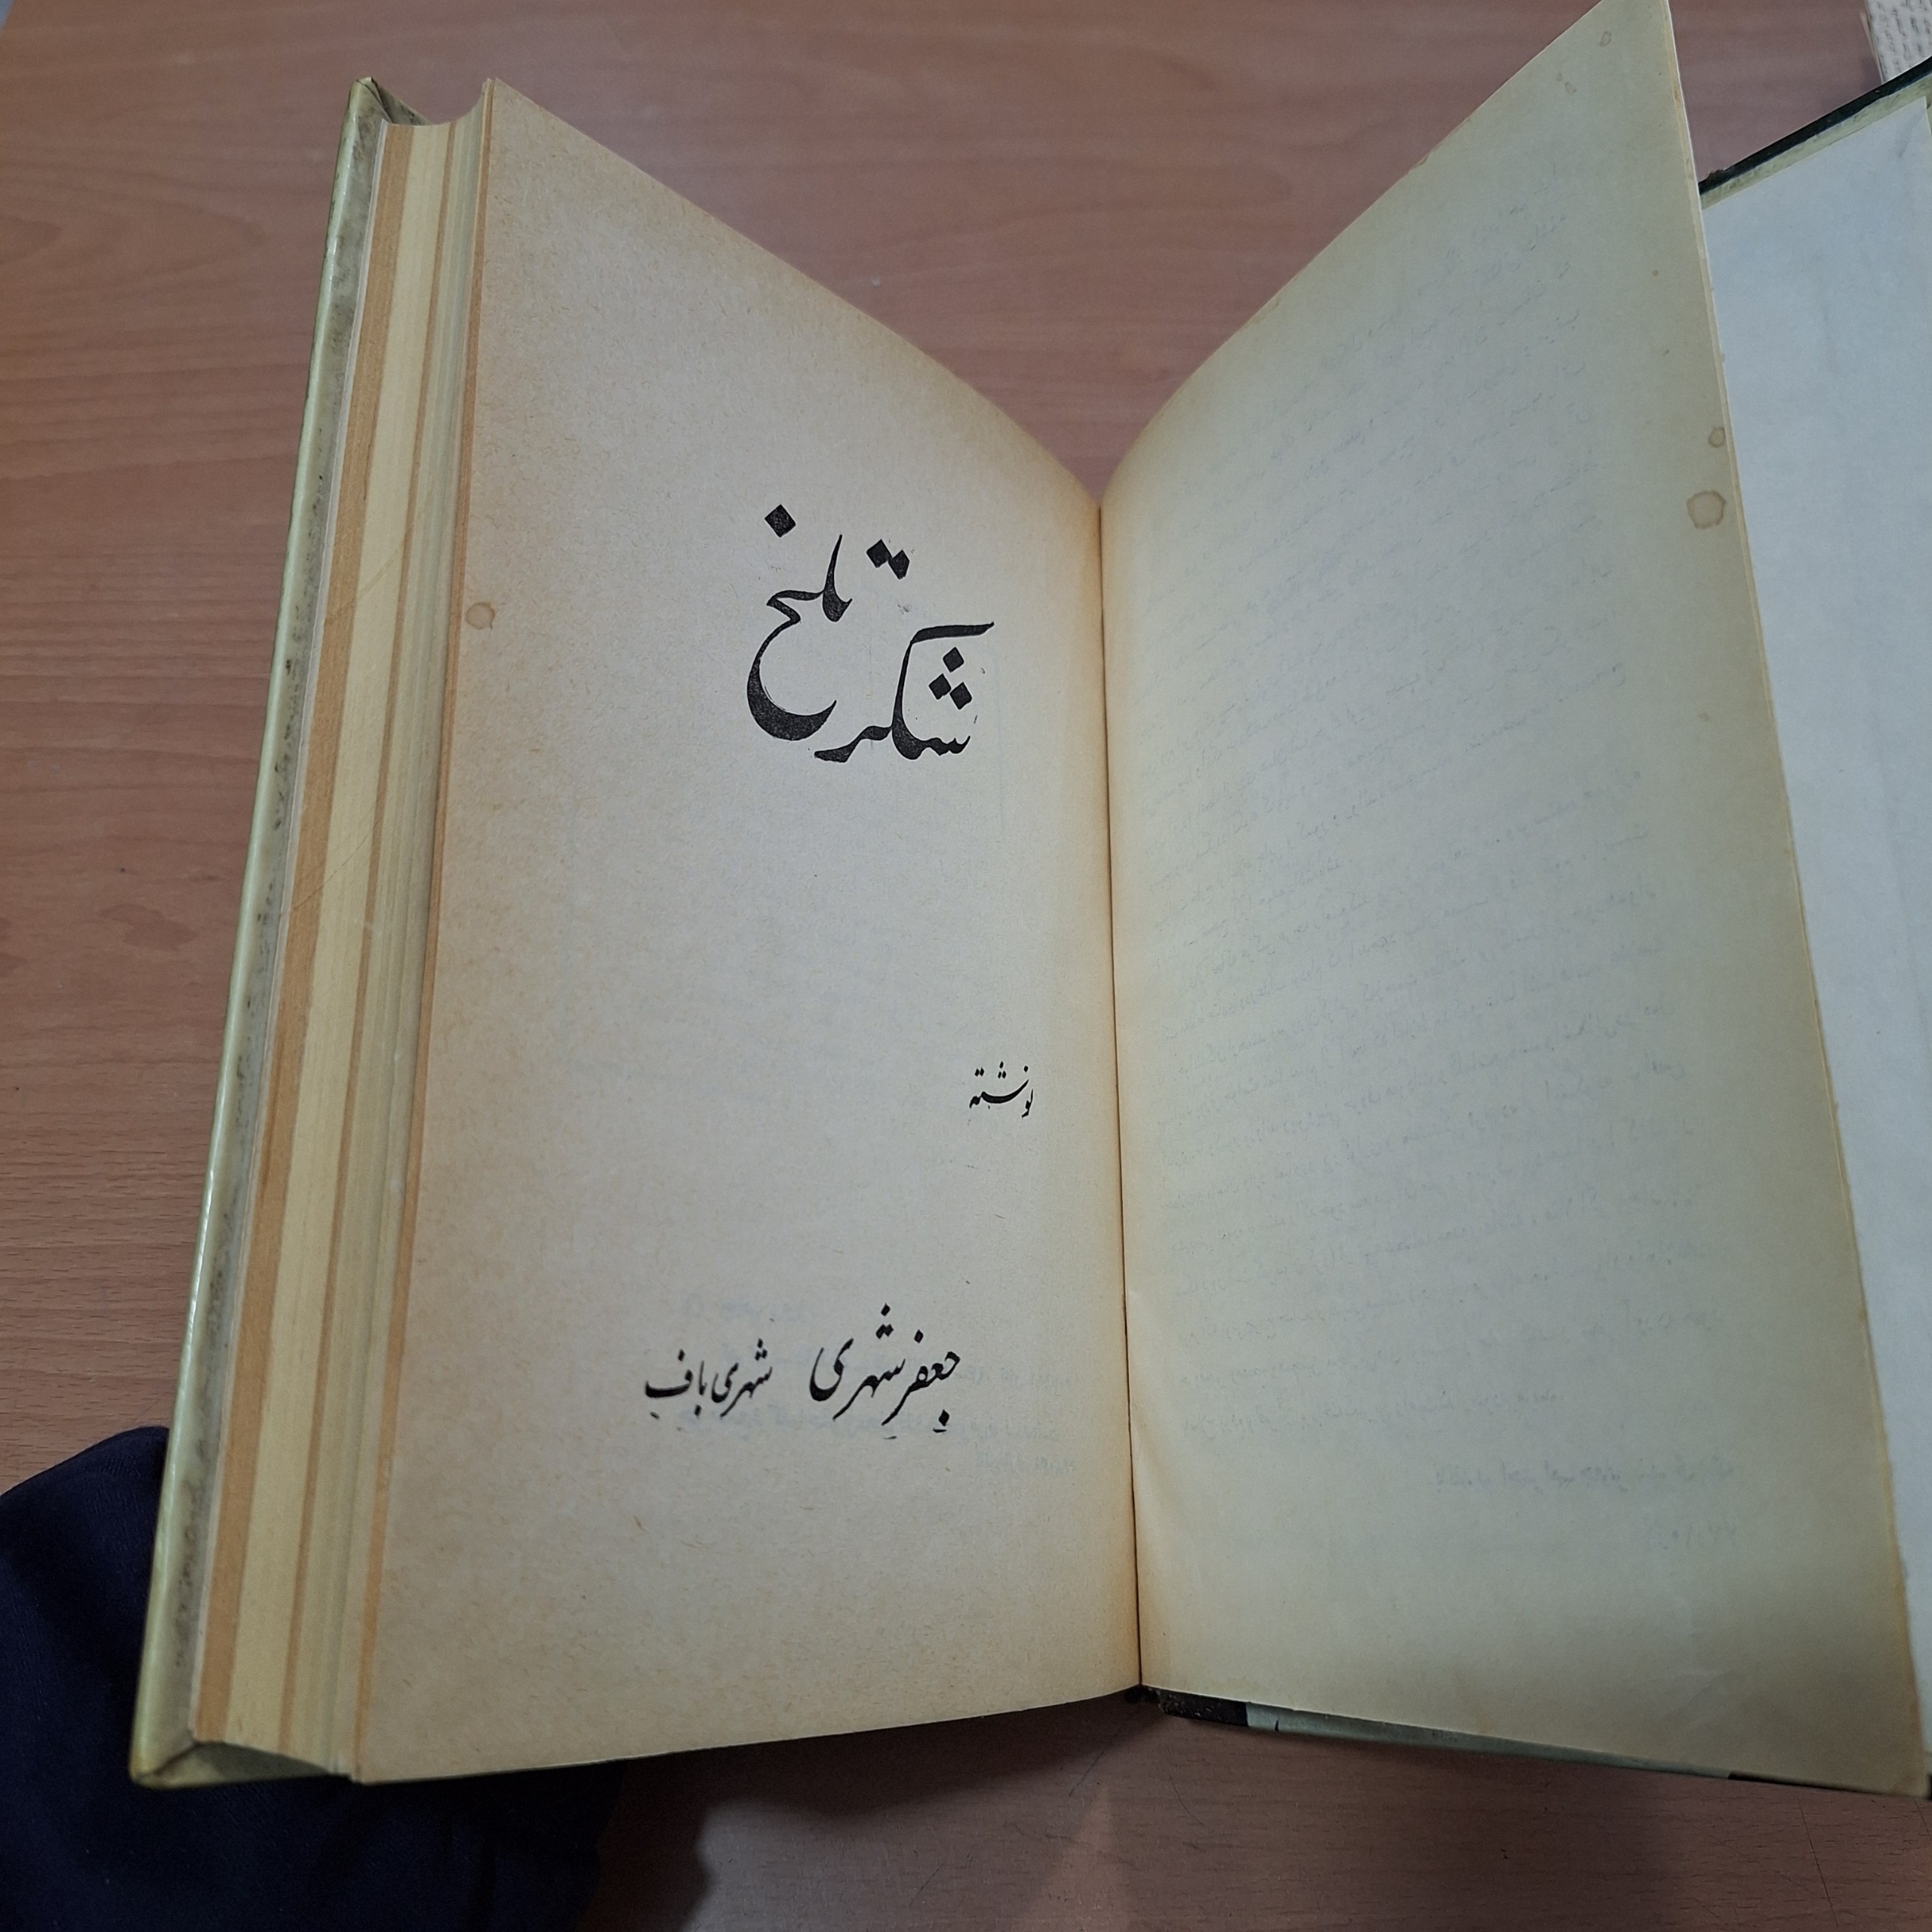 شکر تلخ
نوشته
جعفر شهری شهری باف